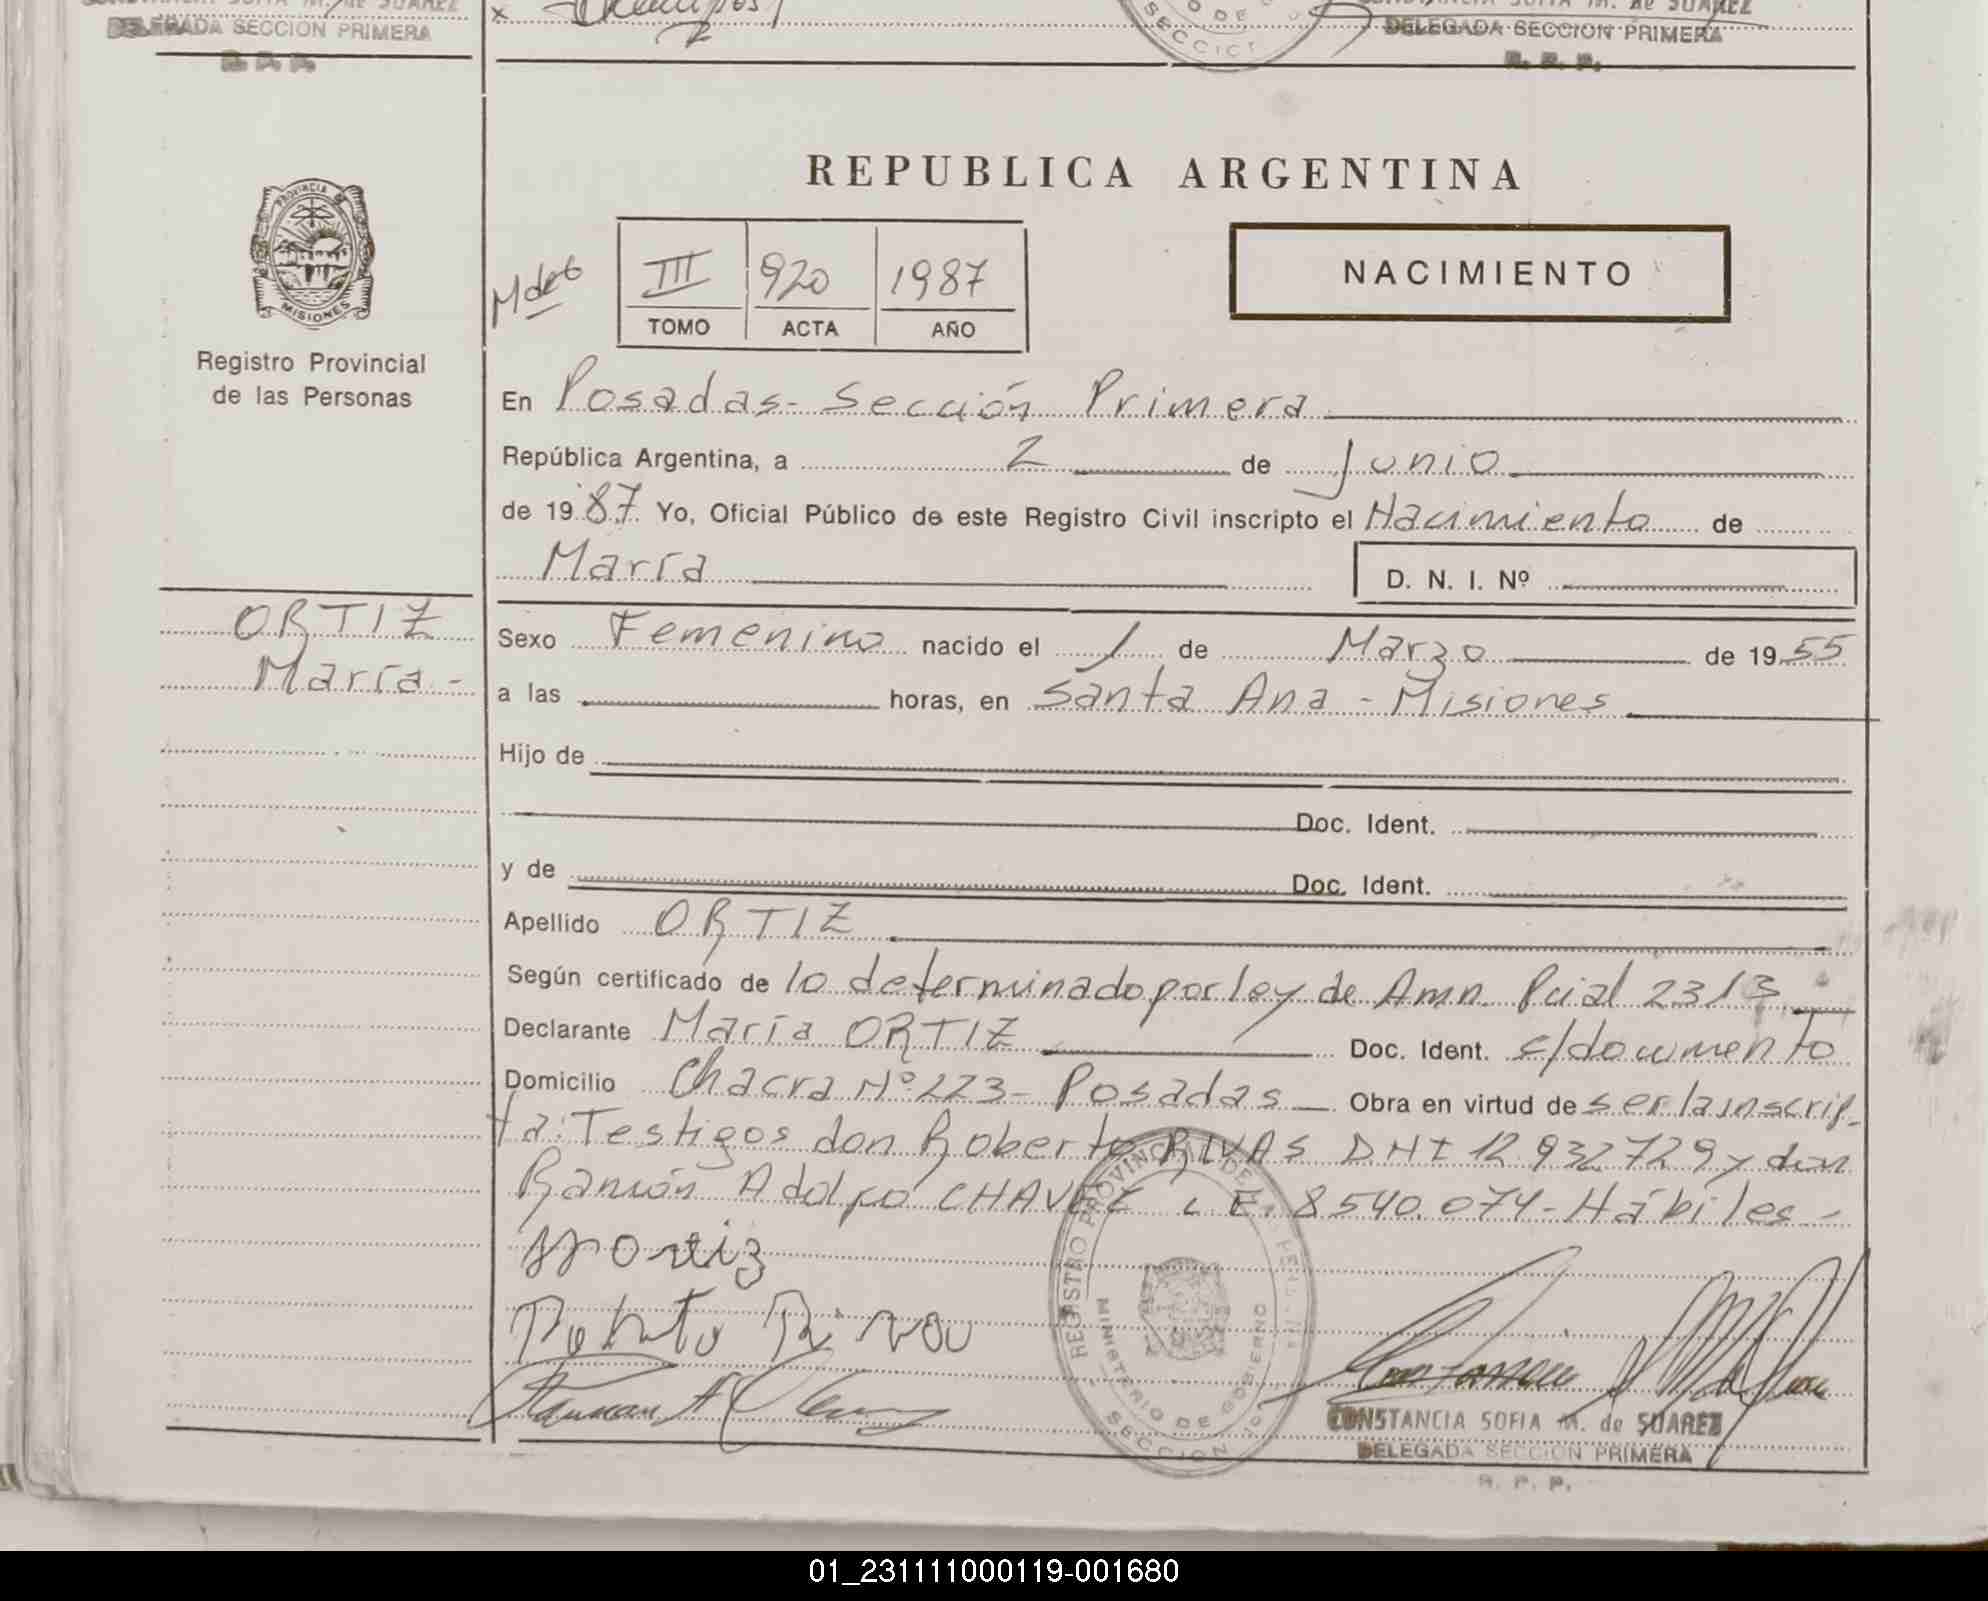 CONSTANCIA SOFIA M. de SUAREZ
DELEGADA SECCION PRIMERA
R. P. P.
SECCION
CONSTANCIA SOFIA M. de SUAREZ
DELEGADA SECCION PRIMERA
R. P. P.
PROVINCIA DE
MISIONES
Registro Provincial
de las Personas
ORTIZ
María -
REPUBLICA ARGENTINA
III 920 1987
TOMO ACTA AÑO
NACIMIENTO
En Posadas - Sección Primera
República Argentina, a 2 de Junio
de 1987 Yo, Oficial Público de este Registro Civil inscripto el Nacimiento de
María D. N. I. Nº
Sexo Femenino nacido el 1 de Marzo de 1955
a las horas, en Santa Ana - Misiones
Hijo de
Doc. Ident.
y de Doc. Ident.
Apellido ORTIZ
Según certificado de lo determinado por ley de Amn. Pcial 2313
Declarante María ORTIZ Doc. Ident. c/documento
Domicilio Chacra Nº 223 - Posadas Obra en virtud de ser la inscrip-
ta: Testigos don Roberto RIVAS DNI 12.932729 y don
Ramón Adolfo CHAVEZ L.E. 8540.074 - Hábiles -
M Ortiz
Roberto Rivas
REGISTRO PROVINCIAL DE LAS PERSONAS
MINISTERIO DE GOBIERNO
SECCION 1ra
CONSTANCIA SOFIA M. de SUAREZ
DELEGADA SECCION PRIMERA
R. P. P.
01_231111000119-001680